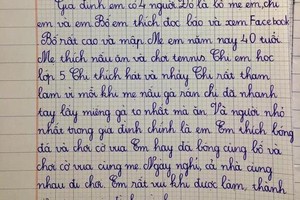 Gia đình em có 4 người. Đó là bố mẹ em, chị
em và em. Bố em thích đọc báo và xem Facebook
Bố rất cao và mập. Mẹ em năm nay 40 tuổi
Mẹ thích nấu ăn và chơi tennis. Chị em học
lớp 5. Chị thích hát và nhảy. Chị rất tham
lam vì mỗi khi mẹ nấu gà rán chị đã nhanh
tay lấy miếng gà to nhất mà ăn. Và người nhỏ
nhất trong gia đình chính là em. Em thích bóng
đá và chơi cờ vua. Em hay đá bóng cùng bố và
chơi cờ vua cùng mẹ. Ngày nghỉ, cả nhà cùng
nhau đi chơi. Em rất vui khi được làm thành